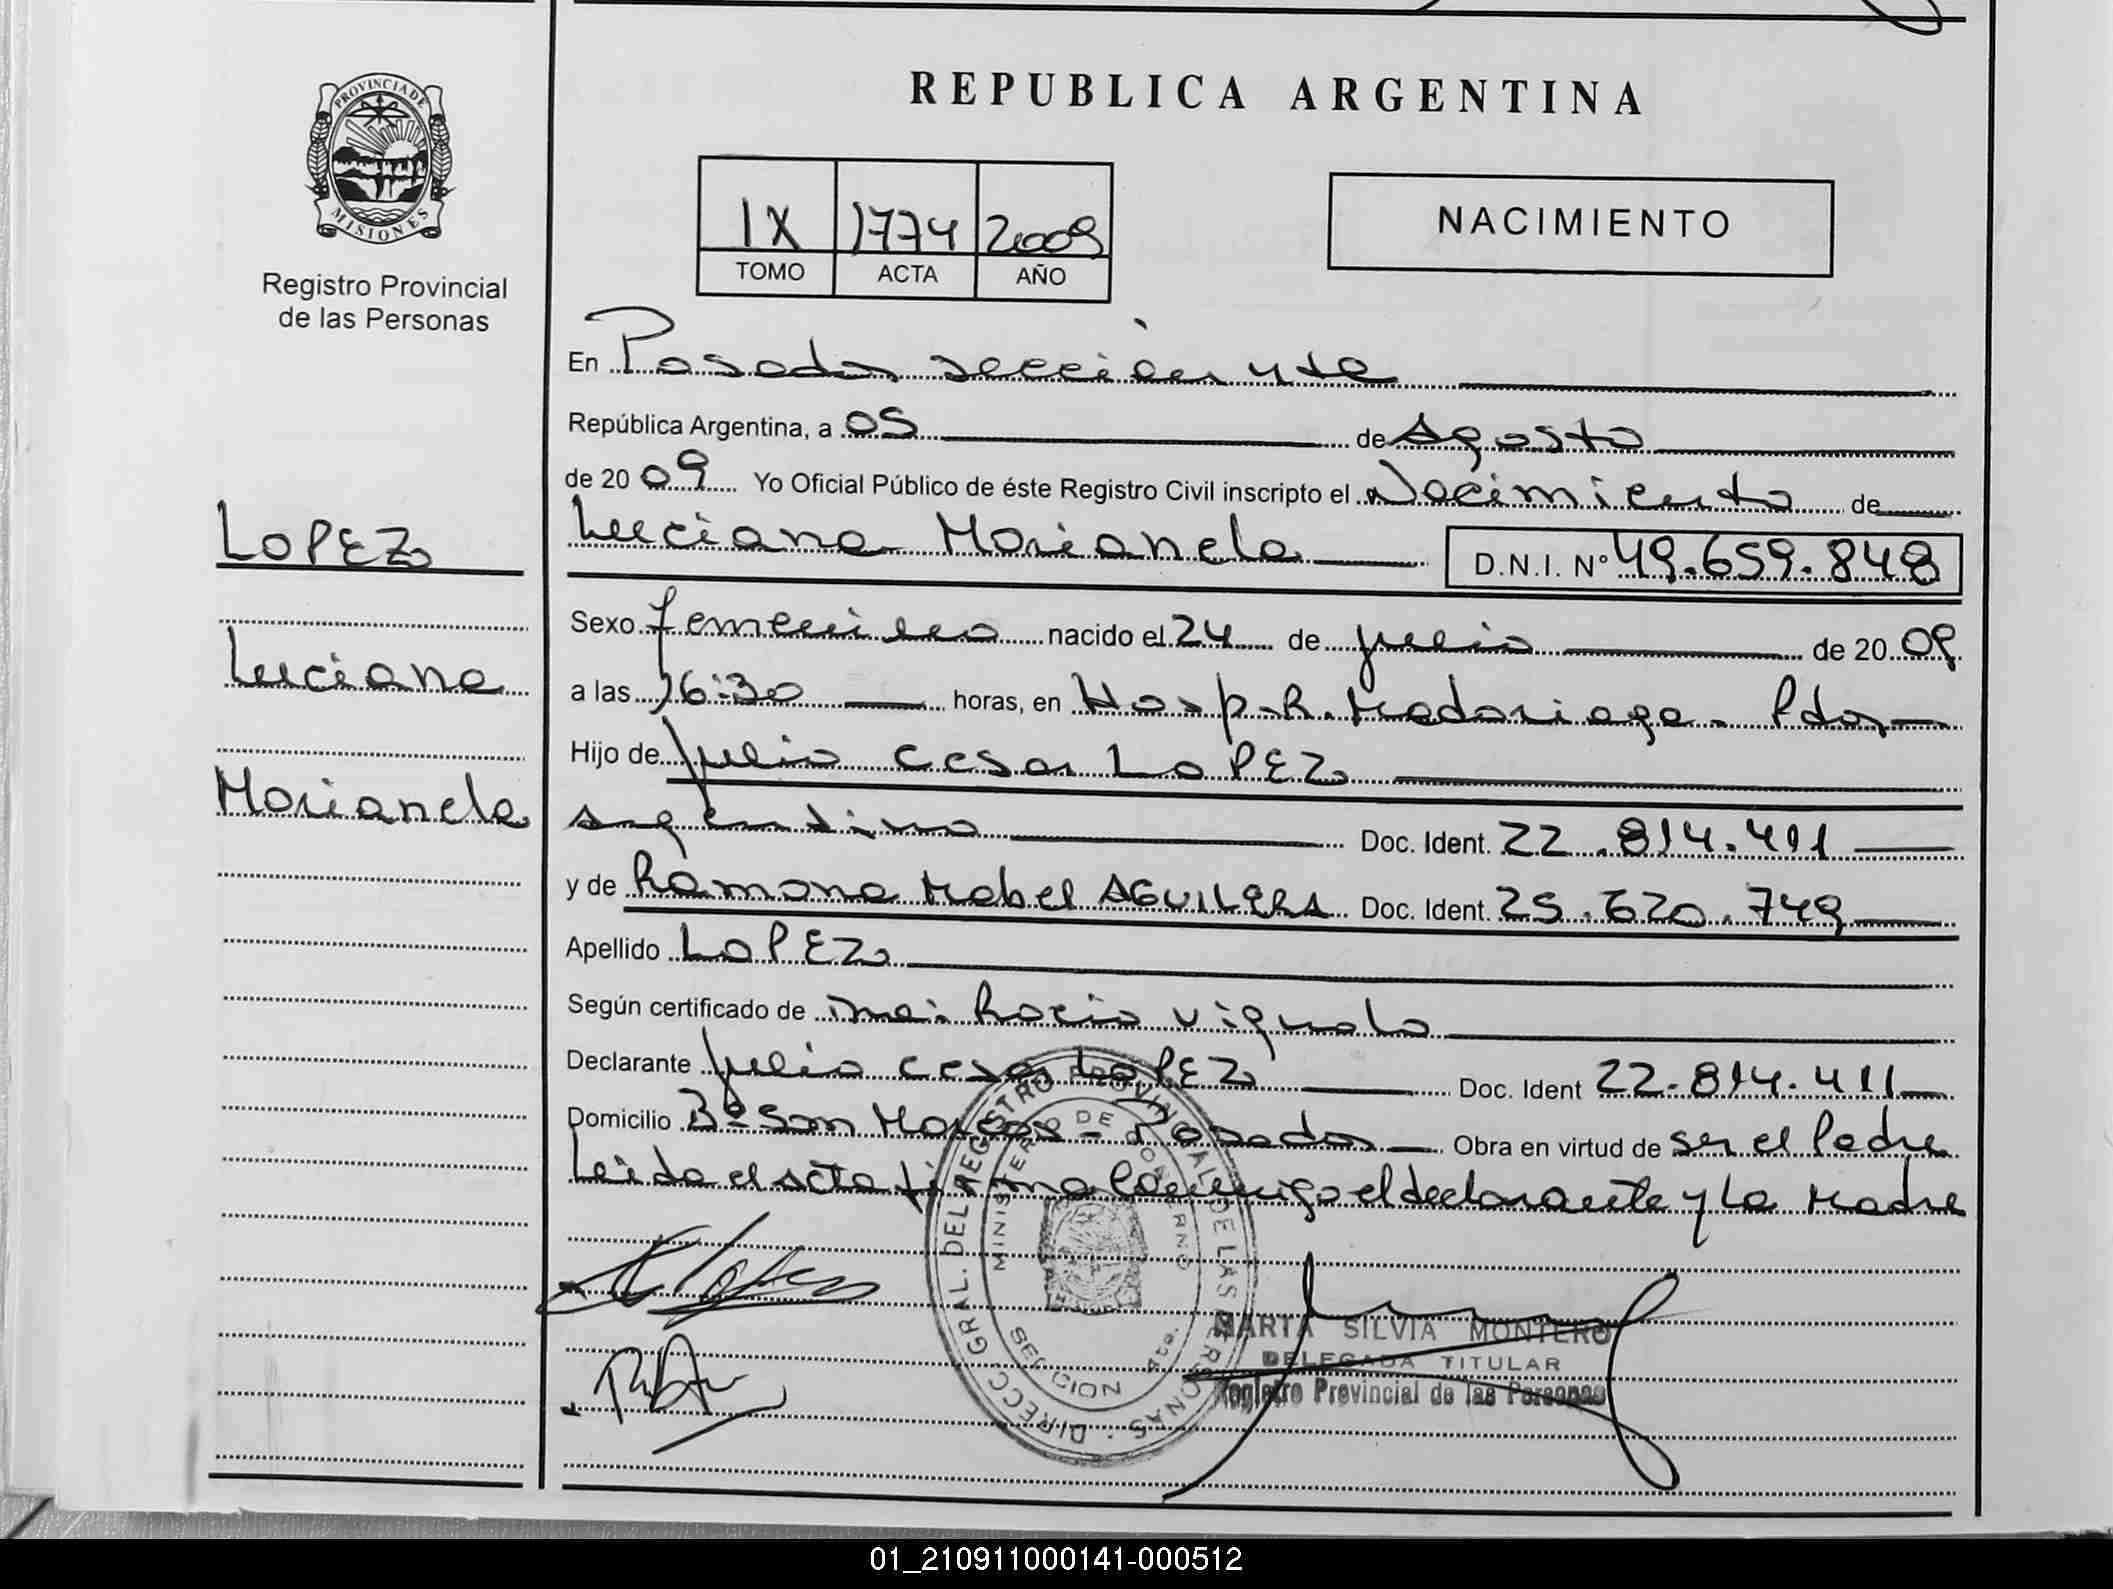 REPUBLICA ARGENTINA
PROVINCIA DE
MISIONES
Registro Provincial
de las Personas
IX 1774 2009
TOMO ACTA AÑO
NACIMIENTO
En Posadas sección 4ta
República Argentina, a 05 de Agosto
de 2009 Yo Oficial Público de éste Registro Civil inscripto el Nacimiento de
Luciana Marianela D.N.I. Nº 49.659.848
LOPEZ
Luciana
Marianela
Sexo femenino nacido el 24 de julio de 2009
a las 16:30 horas, en Hosp. R. Madariaga - Pdas
Hijo de Julio Cesar LOPEZ
argentino Doc. Ident. 22.814.411
y de Ramona Mabel AGUILERA Doc. Ident. 25.620.749
Apellido LOPEZ
Según certificado de Rocio Vignolo
Declarante Julio Cesar LOPEZ Doc. Ident 22.814.411
Domicilio Bº San Marcos - Posadas Obra en virtud de ser el Padre
Leida el acta firma conmigo el declarante y la Madre
DIRECC. GRAL. DEL REGISTRO PROVINCIAL DE LAS PERSONAS
MINISTERIO DE GOBIERNO
SECCION 4ta.
MARTA SILVIA MONTERO
DELEGADA TITULAR
Registro Provincial de las Personas
01_210911000141-000512